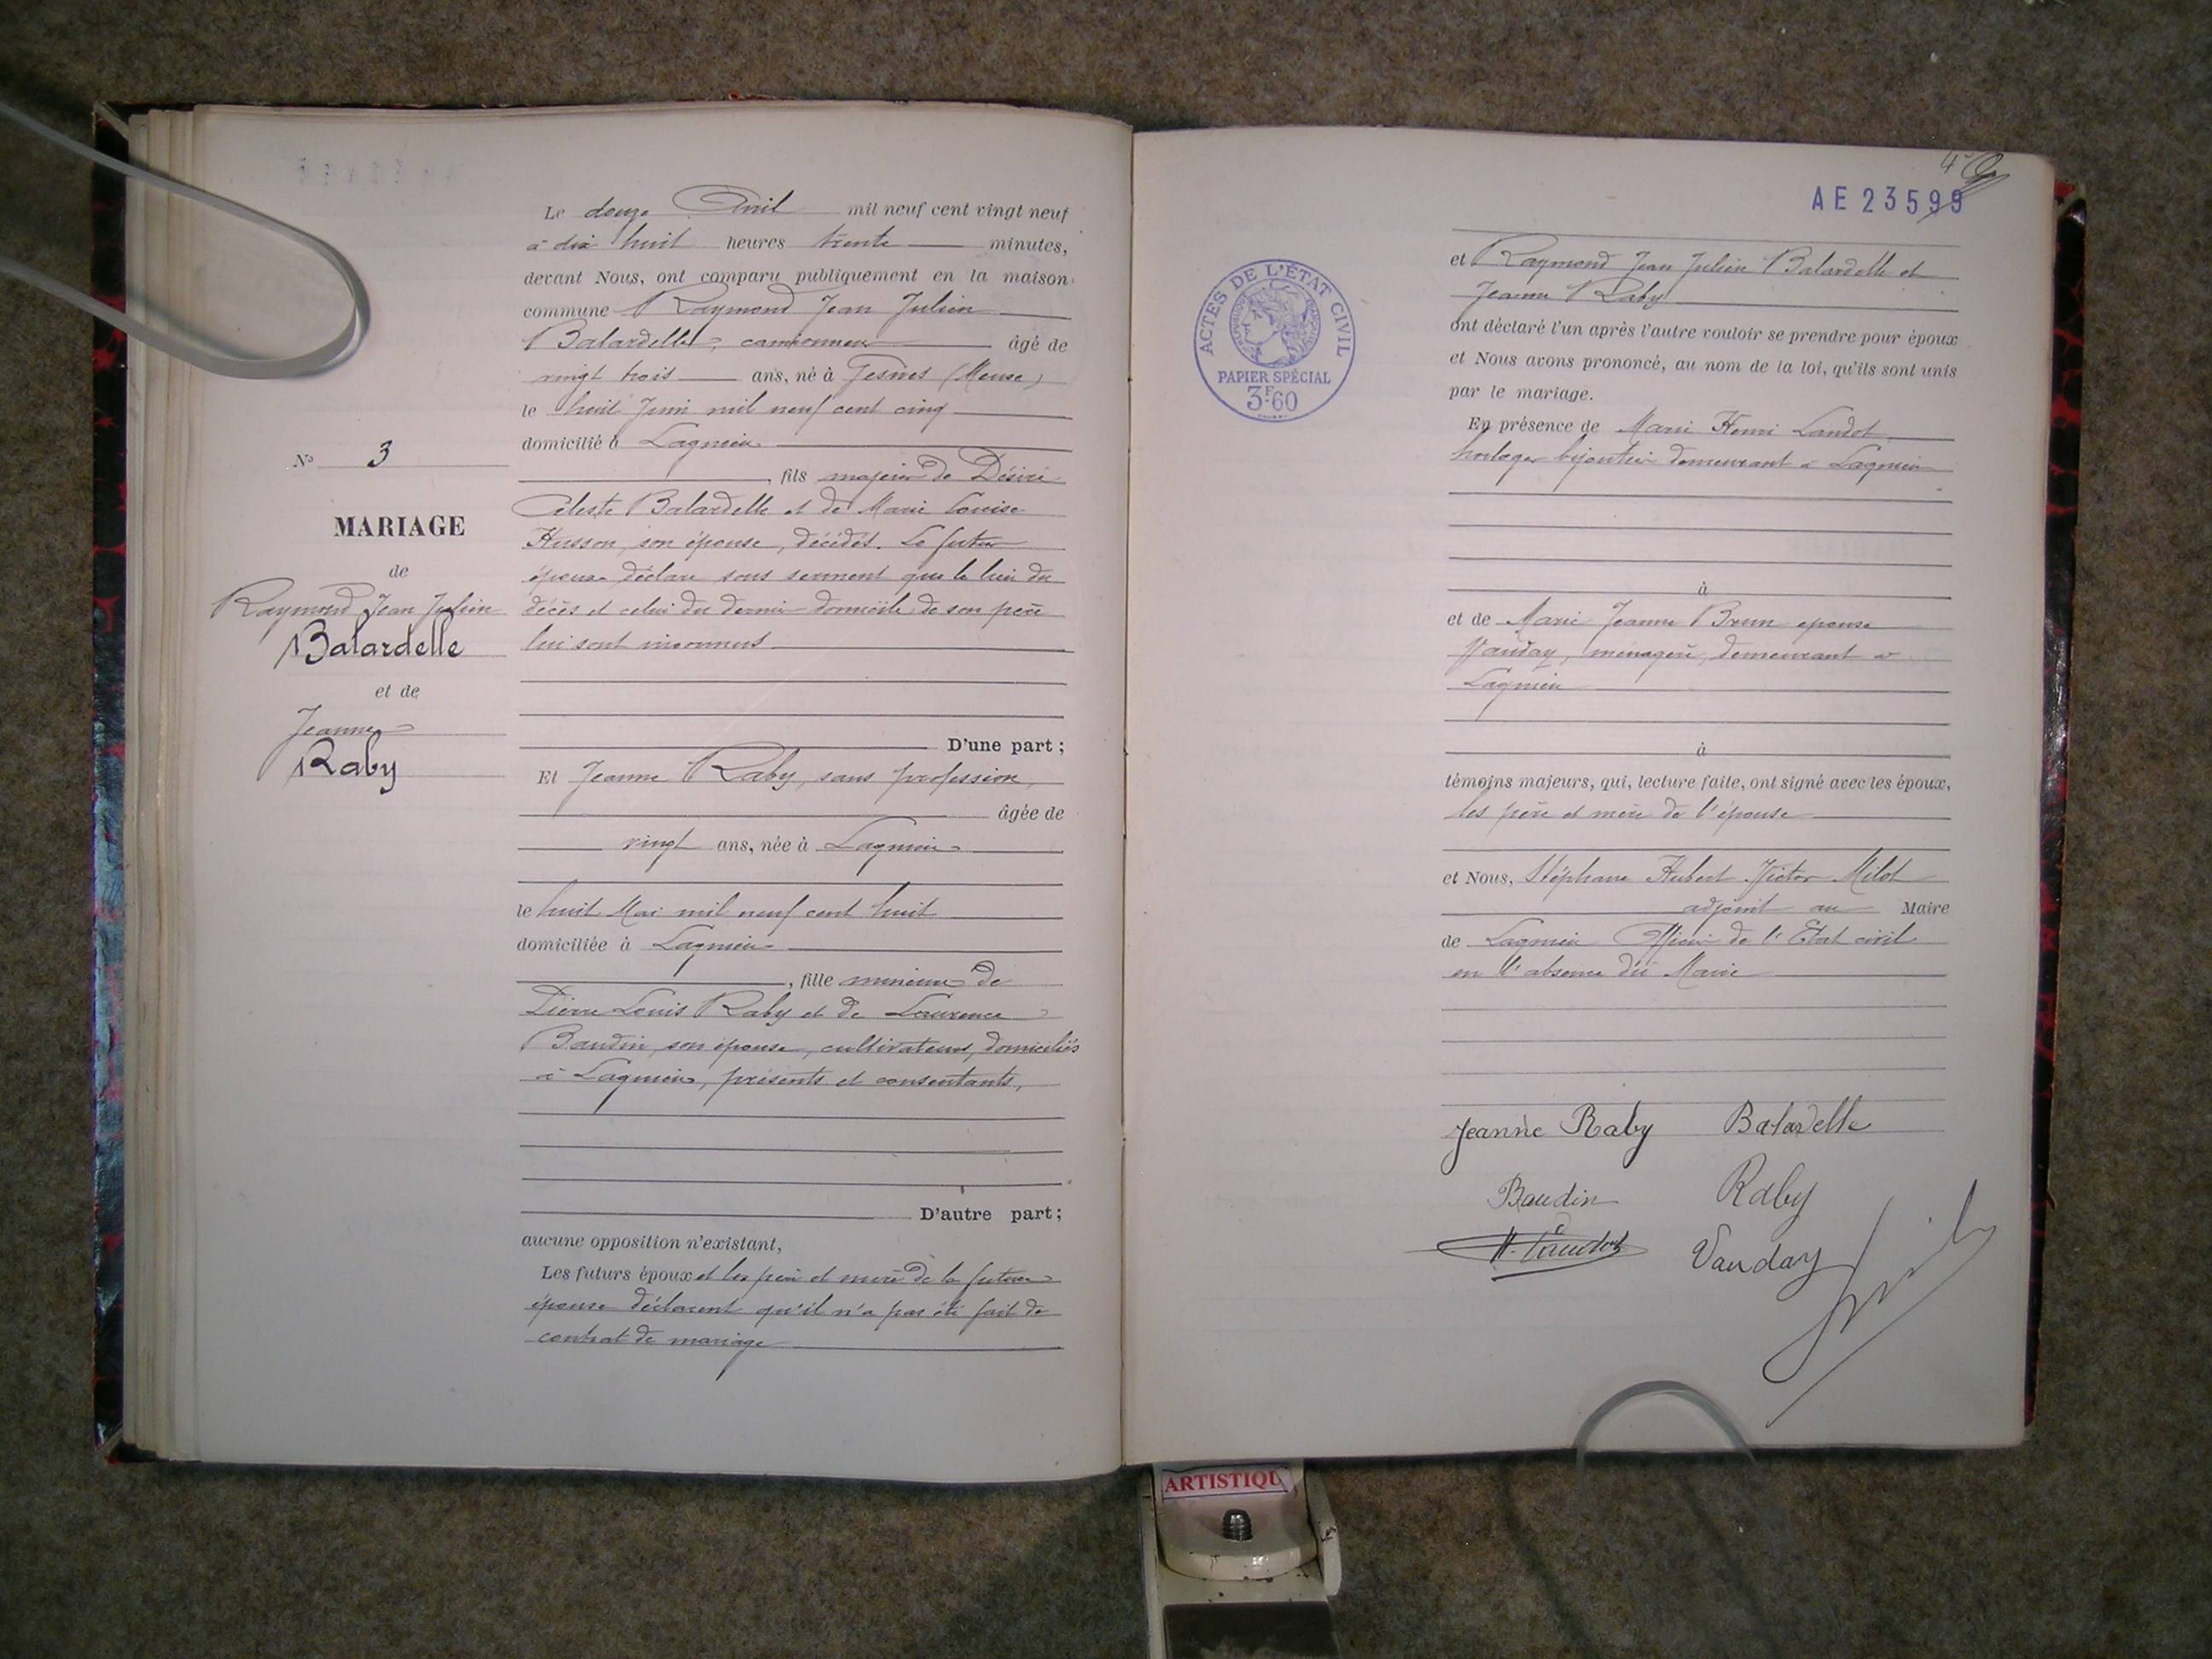 N° 3
MARIAGE
de
Raymond Jean Julien
Balardelle
et de
Jeanne
Raby
Le douze Avril mil neuf cent vingt neuf
à dix huit heures trente minutes,
devant Nous, ont comparu publiquement en la maison
commune Raymond Jean Julien
Balardelle, camionneur âgé de
vingt trois ans, né à Gesnes (Meuse)
le huit Juin mil neuf cent cinq
domicilié à Lagnieu
, fils majeur de Désiré
Céleste Balardelle et de Marie Louise
Husson, son épouse, décédés. Le futur
époux déclare sous serment que le lieu du
décès et celui du dernier domicile de son père
lui sont inconnus
D'une part ;
Et Jeanne Raby, sans profession,
âgée de
vingt ans, née à Lagnieu
le huit Mai mil neuf cent huit
domiciliée à Lagnieu
, fille mineure de
Pierre Louis Raby et de Laurence
Baudin, son épouse, cultivateurs, domiciliés
à Lagnieu, présents et consentants,
D'autre part ;
aucune opposition n'existant,
Les futurs époux et les père et mère de la future
épouse déclarent qu'il n'a pas été fait de
contrat de mariage
4e
AE 23599
ACTES DE L'ÉTAT CIVIL
PAPIER SPÉCIAL
3F60
et Raymond Jean Julien Balardelle et
Jeanne Raby
ont déclaré l'un après l'autre vouloir se prendre pour époux
et Nous avons prononcé, au nom de la loi, qu'ils sont unis
par le mariage.
En présence de Marie Henri Landot,
horloger bijoutier demeurant à Lagnieu
à
et de Marie Jeanne Brun épouse
Vauday, ménagère, demeurant à
Lagnieu
à
témoins majeurs, qui, lecture faite, ont signé avec les époux,
les père et mère de l'épouse
et Nous, Stéphane Hubert Victor Milot
adjoint au Maire
de Lagnieu Officier de l'Etat civil
en l'absence du Maire
Jeanne Raby Balardelle
Baudin Raby
H. Landot Vauday
ARTISTIQU